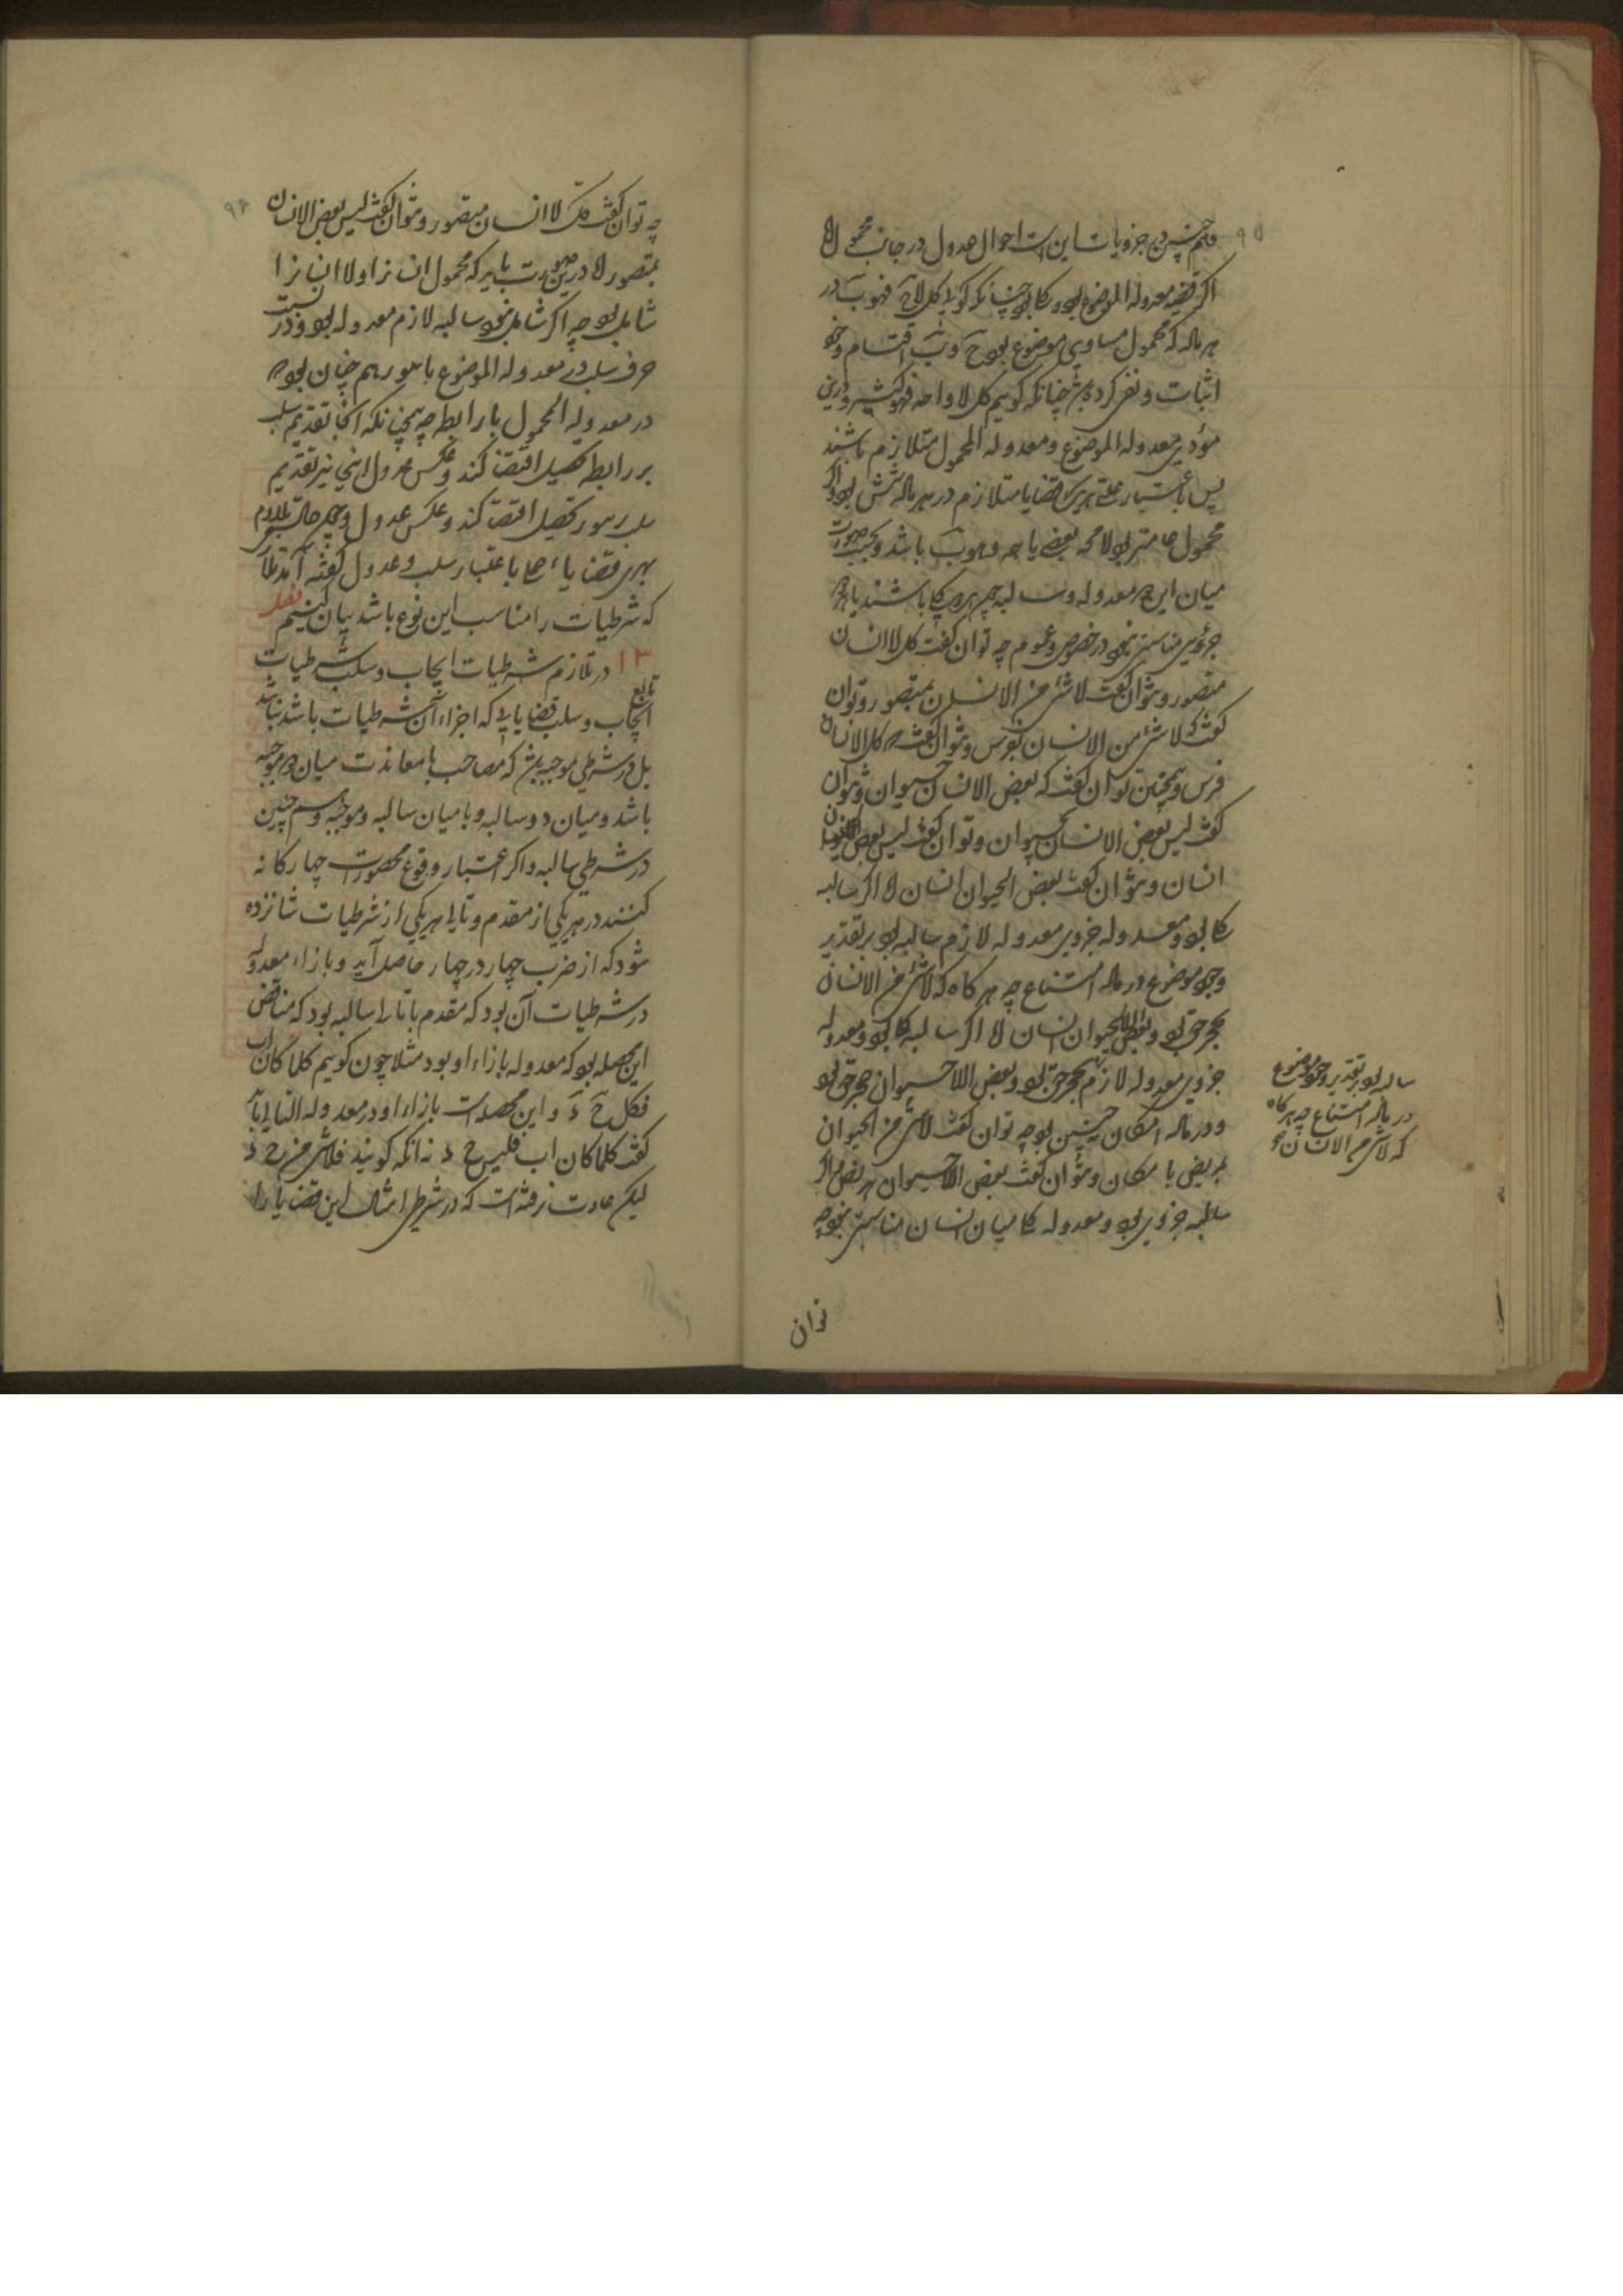 ۹۵
وهم چنین در جزویات این است احوال عدول در جانب محمول اما
اگر قضیه معدوله الموضوع بود و کلی بود چنانکه گوئی کل لا ج فهو ب در
هر ماده که محمول مساوی موضوع بود ج و ب اقتسام وجوه
اثبات و نفی کرده باشند چنانکه گوییم کل لا واحد فهو کثیر و درین
معدوله الموضوع و معدوله المحمول متلازم باشند
پس باعتبار قضایا متلازم در هر ماده شش بود و اگر
محمول عامتر بود لا محه بعضی یا جه وهوب باشد و بحسب صورت
میان این دو معدوله و سالبه چه هر دو کلی باشند یا هر دو
جزوی مناسبتی نبود در خصوص و عموم چه توان گفت کل لا انسان
متصور و نتوان گفت لا شئ من الانسان بمتصور و توان
گفت که لا شئ من الانسان بفرس و نتوان گفت که کل لا انسان
فرس و همچنین توان گفت که بعض الانسان حیوان و نتوان
گفت لیس بعض الانسان بحیوان و توان گفت لیس بعض الحیوان
انسان و نتوان گفت بعض الحیوان انسان اما اگر سالبه
کلی بود و معدوله جزوی معدوله لازم سالبه بود بر تقدیر
وجود موضوع در ماده امتناع چه هر گاه که لا شئ من الانسان
بحجر حق بود و بعض اللاحیوان انسان اما اگر سالبه کلی بود و معدوله
جزوی معدوله لازم بحجر حق بود و بعض اللاحیوان حجر حق بود
و در ماده امکان چنین بود چه توان گفت لا شئ من الحیوان
بمریض بامکان و نتوان گفت بعض اللاحیوان مریض و اگر
سالبه جزوی بود و معدوله کلی میان ایشان مناسبتی نبود چه
سالبه بود بر تقدیر وجود موضوع
در ماده امتناع چه هر گاه
که لا شئ من الانسان بحجر
توان
۹۶
چه توان گفت کل لا انسان متصور و نتوان گفت لیس بعض الانسان
بمتصور اما درین صورت باید که محمول انسان را و لا انسان را
شامل بود چه اگر شامل نبود سالبه لازم معدوله بود و نسبت
حرف سلب در معدوله الموضوع با سور هم چنان بود که
در معدوله المحمول با رابطه چه همچنانکه آنجا تقدیم سلب
بر رابطه تحصیل اقتضا کند و عکس عدول اینجا نیز تقدیم
سلب بر سور تحصیل اقتضا کند و عکس عدول
بهری قضایاء حملی باعتبار سلب و عدول گفته آمد
که شرطیات را مناسب این نوع باشد بیان کنیم فصل
۱۳ در تلازم شرطیات ایجاب و سلب شرطیات تابع
ایجاب و سلب قضایایی که اجزاء آن شرطیات باشد نباشد
بل در شرطی موجبه باشد که مصاحبت یا معاندت میان دو موجبه
باشد و میان دو سالبه و یا میان سالبه و موجبه و هم چنین
در شرطی سالبه و اگر اعتبار وقوع محصورات چهارگانه
کنند در هر یکی از مقدم و تالی هر یکی از شرطیات شانزده
شود که از ضرب چهار در چهار حاصل آید و بازاء معدوله
در شرطیات آن بود که مقدم یا تالی را سالبه بود که مناقض
این محصله بود که معدوله بازاء او بود مثلا چون گوییم کلما کان اب
فکل ج د و این محصله است بازاء او در معدوله التالی باید
گفت کلما کان اب فلیس ج د نه آنکه گویند فلا شئ من ج د
لیکن عادت نرفته است که در شرطی امثال این قضایا را